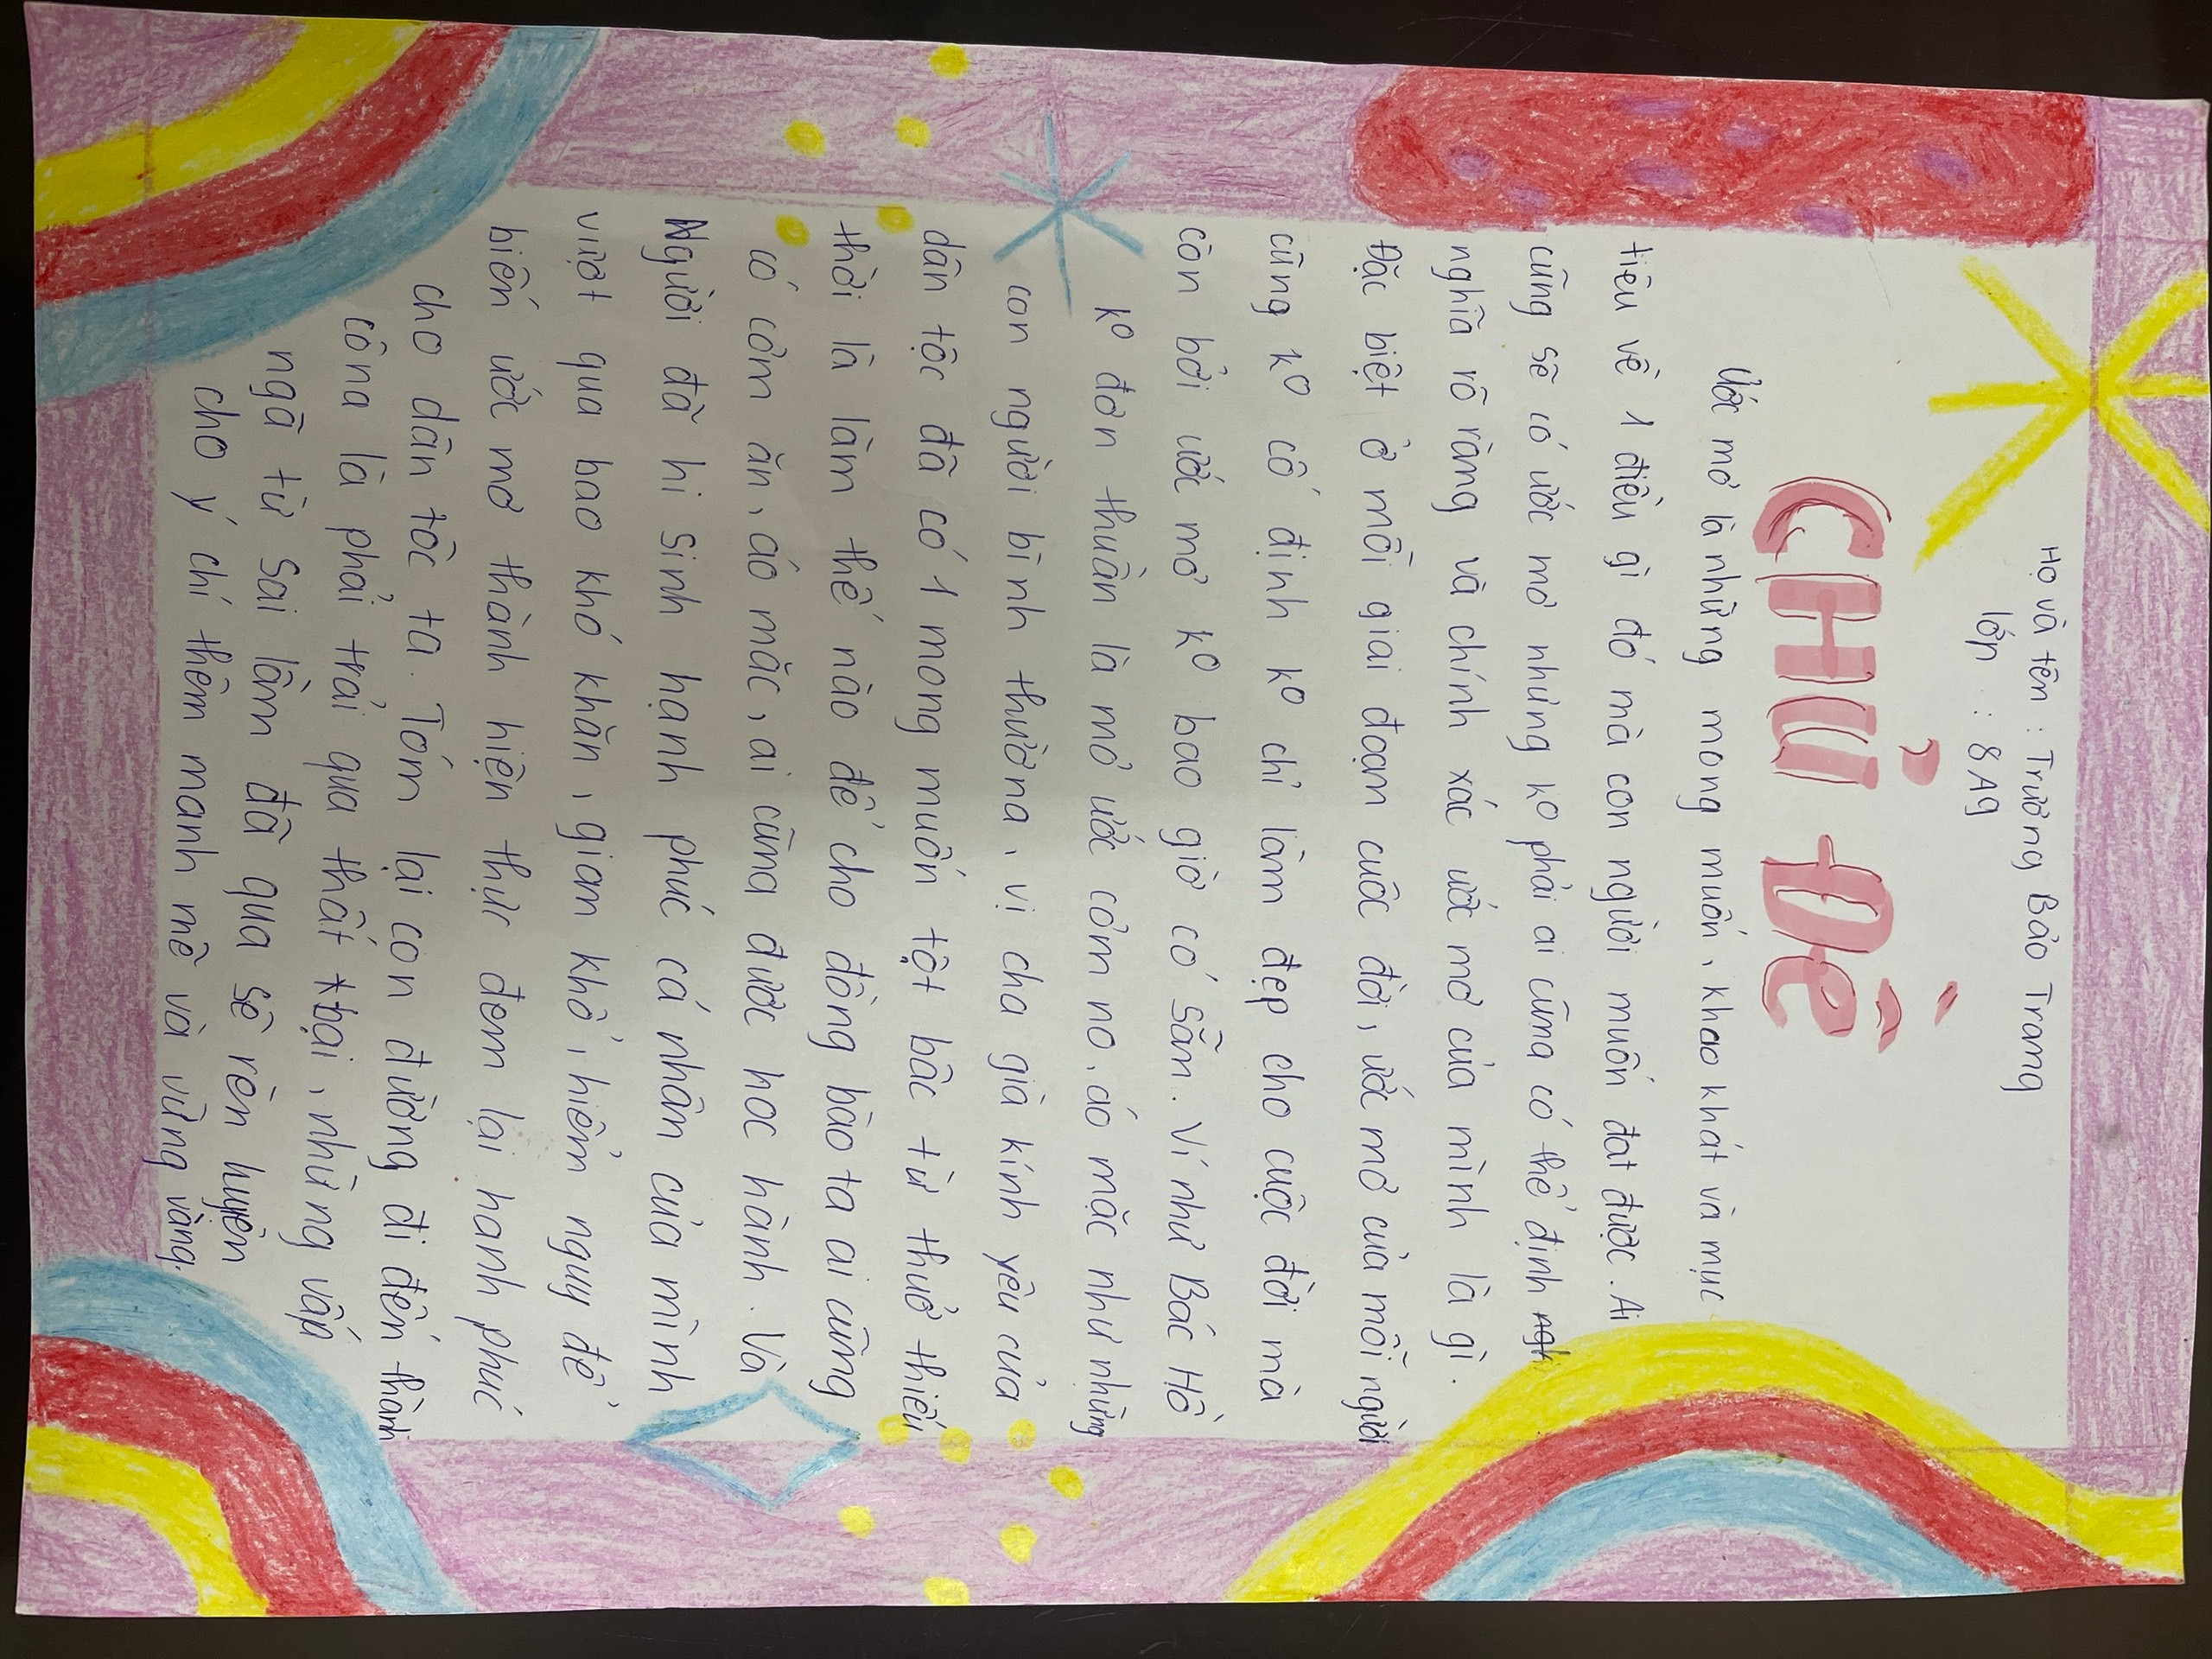 Họ và tên : Trương Bảo Trang
lớp : 8A9
CHỦ ĐỀ
Ước mơ là những mong muốn, khao khát và mục
tiêu về 1 điều gì đó mà con người muốn đạt được. Ai
cũng sẽ có ước mơ nhưng ko phải ai cũng có thể định
nghĩa rõ ràng và chính xác ước mơ của mình là gì.
Đặc biệt ở mỗi giai đoạn cuộc đời, ước mơ của mỗi người
cũng ko cố định ko chỉ làm đẹp cho cuộc đời mà
còn bởi ước mơ ko bao giờ có sẵn. Ví như Bác Hồ
ko đơn thuần là mơ ước cơm no, áo mặc như những
con người bình thường, vị cha già kính yêu của
dân tộc đã có 1 mong muốn tột bậc từ thuở thiếu
thời là làm thế nào để cho đồng bào ta ai cũng
có cơm ăn, áo mặc, ai cũng được học hành. Và
Người đã hi sinh hạnh phúc cá nhân của mình
vượt qua bao khó khăn, gian khổ, hiểm nguy để
biến ước mơ thành hiện thực đem lại hạnh phúc
cho dân tộc ta. Tóm lại con đường đi đến thành
công là phải trải qua thất bại, những vấp
ngã từ sai lầm đã qua sẽ rèn luyện
cho ý chí thêm mạnh mẽ và vững vàng.